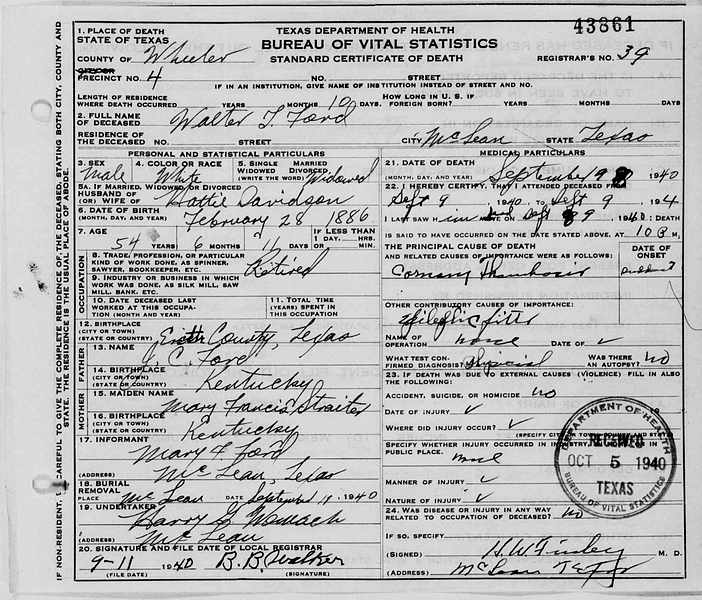 43861
TEXAS DEPARTMENT OF HEALTH
BUREAU OF VITAL STATISTICS
STANDARD CERTIFICATE OF DEATH
REGISTRAR'S NO. 39
IF NON-RESIDENT, BE CAREFUL TO GIVE THE COMPLETE RESIDENCE OF THE DECEASED, STATING BOTH CITY, COUNTY AND
STATE. THE RESIDENCE IS THE USUAL PLACE OF ABODE.
1. PLACE OF DEATH
STATE OF TEXAS
COUNTY OF Wheeler
PRECINCT NO. 4 NO. STREET
IF IN AN INSTITUTION, GIVE NAME OF INSTITUTION INSTEAD OF STREET AND NO.
LENGTH OF RESIDENCE
WHERE DEATH OCCURRED YEARS MONTHS 10 DAYS. HOW LONG IN U. S. IF FOREIGN BORN? YEARS MONTHS DAYS
2. FULL NAME
OF DECEASED Walter T. Ford
RESIDENCE OF
THE DECEASED NO. STREET CITY McLean STATE Texas
PERSONAL AND STATISTICAL PARTICULARS
3. SEX Male
4. COLOR OR RACE White
5. SINGLE MARRIED WIDOWED DIVORCED (WRITE THE WORD) Widowed
5A. IF MARRIED, WIDOWED OR DIVORCED
HUSBAND OF
(OR) WIFE OF Hattie Davidson
6. DATE OF BIRTH
(MONTH, DAY, AND YEAR) February 28 1886
7. AGE
54 YEARS 6 MONTHS 11 DAYS
IF LESS THAN
1 DAY, HRS. MIN.
OCCUPATION
8. TRADE, PROFESSION, OR PARTICULAR
KIND OF WORK DONE, AS SPINNER,
SAWYER, BOOKKEEPER, ETC. Retired
9. INDUSTRY OR BUSINESS IN WHICH
WORK WAS DONE, AS SILK MILL, SAW
MILL, BANK, ETC.
10. DATE DECEASED LAST
WORKED AT THIS OCCUPATION
(MONTH AND YEAR)
11. TOTAL TIME (YEARS) SPENT IN THIS OCCUPATION
12. BIRTHPLACE
(CITY OR TOWN)
(STATE OR COUNTRY) County, Texas
FATHER
13. NAME C. Ford
14. BIRTHPLACE
(CITY OR TOWN)
(STATE OR COUNTRY) Kentucky
MOTHER
15. MAIDEN NAME Mary Francis Straiter
16. BIRTHPLACE
(CITY OR TOWN)
(STATE OR COUNTRY) Kentucky
17. INFORMANT Mary F Ford
(ADDRESS) McLean, Texas
18. BURIAL
REMOVAL
PLACE McLean DATE September 11, 1940
19. UNDERTAKER Harry G Womack
(ADDRESS) McLean
20. SIGNATURE AND FILE DATE OF LOCAL REGISTRAR
9-11 1940 B.B. Walker
(FILE DATE) (SIGNATURE)
MEDICAL PARTICULARS
21. DATE OF DEATH
(MONTH, DAY, AND YEAR) September 9 1940
22. I HEREBY CERTIFY, THAT I ATTENDED DECEASED FROM
Sept 9 1940, TO Sept 9, 194
I LAST SAW him ON Sept 9 1940: DEATH
IS SAID TO HAVE OCCURRED ON THE DATE STATED ABOVE, AT 10 P M,
THE PRINCIPAL CAUSE OF DEATH
AND RELATED CAUSES OF IMPORTANCE WERE AS FOLLOWS:
DATE OF ONSET
Cornary
OTHER CONTRIBUTORY CAUSES OF IMPORTANCE:
NAME OF
OPERATION none DATE OF
WHAT TEST CONFIRMED DIAGNOSIS? Physicial WAS THERE AN AUTOPSY? no
23. IF DEATH WAS DUE TO EXTERNAL CAUSES (VIOLENCE) FILL IN ALSO
THE FOLLOWING:
ACCIDENT, SUICIDE, OR HOMICIDE no
DATE OF INJURY
WHERE DID INJURY OCCUR?
(SPECIFY CITY OR TOWN, COUNTY AND STATE)
SPECIFY WHETHER INJURY OCCURRED IN INDUSTRY,
PUBLIC PLACE. none
MANNER OF INJURY
NATURE OF INJURY
24. WAS DISEASE OR INJURY IN ANY WAY
RELATED TO OCCUPATION OF DECEASED? no
IF SO, SPECIFY
(SIGNED) H.W. Finley M. D.
(ADDRESS) McLean Texas
DEPARTMENT OF HEALTH
RECEIVED
OCT 5 1940
TEXAS
BUREAU OF VITAL STATISTICS